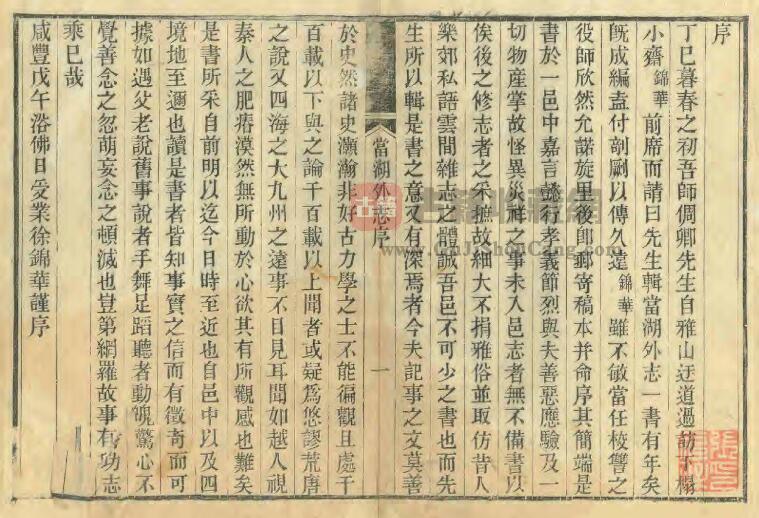 序
丁巳暮春之初吾師倜卿先生自雅山迂道過訪下榻
小齋錦華前席而請曰先生輯當湖外志一書有年矣
旣成編盍付剞劂以傳久遠錦華雖不敏當任校讐之
役師欣然允諾旋里後卽郵寄稿本并命序其簡端是
書於一邑中嘉言懿行孝義節烈與夫善惡應驗及一
切物産掌故怪異災祥之事未入邑志者無不備書以
俟後之修志者之采摭故細大不捐雅俗並取仿昔人
樂郊私語雲間雜志之體誠吾邑不可少之書也而先
生所以輯是書之意又有深焉者今夫記事之文莫善
當湖外志序 一
於史然諸史灝瀚非好古力學之士不能徧觀且處千
百載以下與之論千百載以上聞者或疑爲悠謬荒唐
之說又四海之大九州之遠事不目見耳聞如越人視
秦人之肥瘠漠然無所動於心欲其有所觀感也難矣
是書所采自前明以迄今日時至近也自邑中以及四
境地至邇也讀是書者皆知事實之信而有徵奇而可
據如遇父老說舊事說者手舞足蹈聽者動魄驚心不
覺善念之忽萌妄念之頓滅也豈第網羅故事有功志
乘已哉
咸豐戊午浴佛日受業徐錦華謹序
www.GuJiShouCang.com